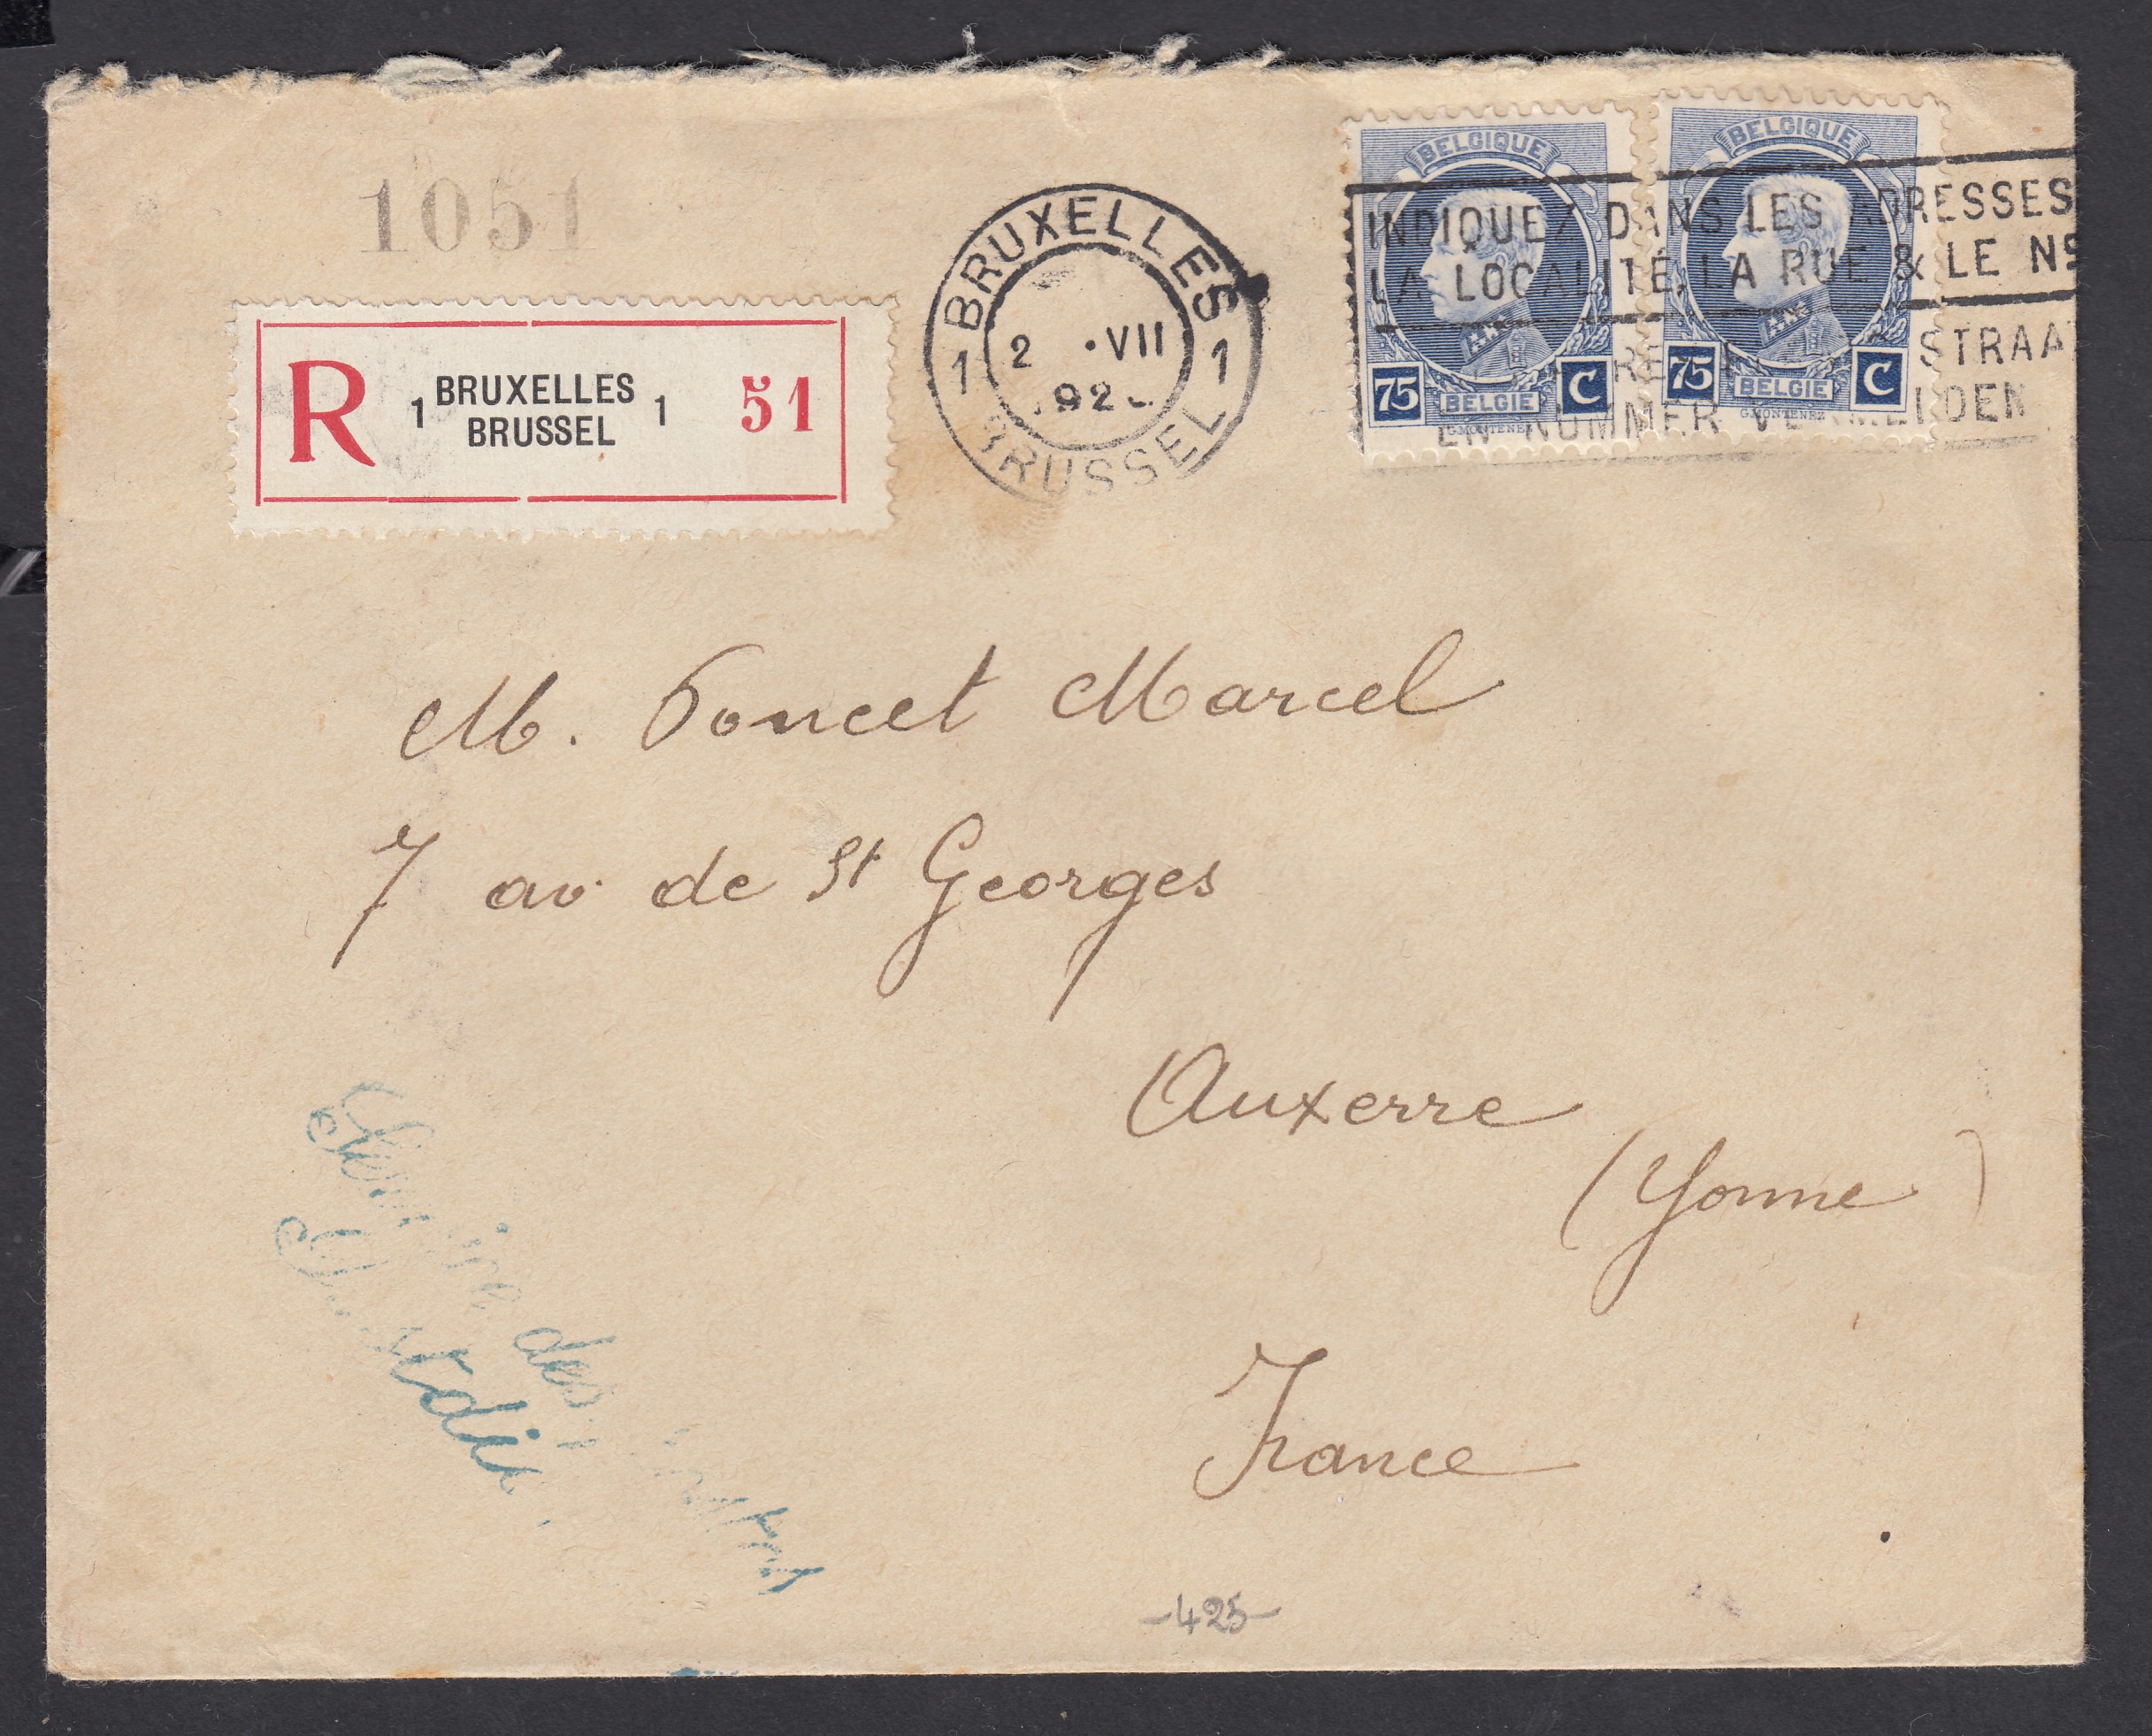 1051
R 1 BRUXELLES BRUSSEL 1 51
BRUXELLES
1 2 .VII 1
192
BRUSSEL
BELGIQUE BELGIQUE
INDIQUEZ DANS LES ADRESSES
LA LOCALITÉ, LA RUE & LE Nº
STRAAT
EN NUMMER VERMELDEN
75 C 75 C
BELGIE BELGIE
G.MONTENEZ G.MONTENEZ
M. Poncet Marcel
7 av. de St Georges
Auxerre
(Yonne)
France
des
-425-